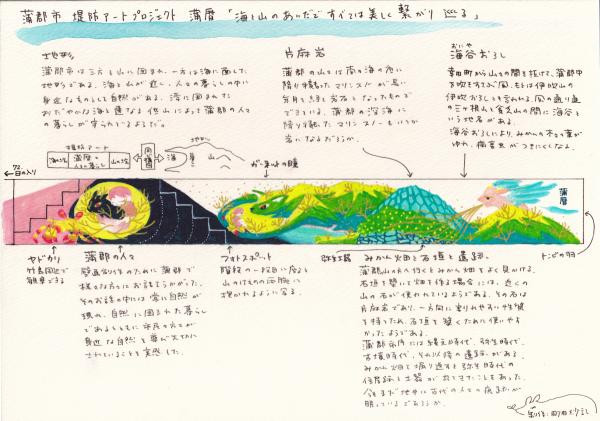 蒲郡市 堤防アートプロジェクト 蒲暦 「海と山のあいだですべては美しく繋がり 巡る」
地形
蒲郡市は三方を山に囲まれ、一方は海に面した
地形である。海と山が近く、人々の暮らしの中に
身近なものとして自然がある。湾に囲まれた
おだやかな海と連なる低山によって蒲郡の人々
の暮らしが守られているようだ。
片麻岩
蒲郡の山々は南の海の底に
降り積もったマリンスノーが長い
年月を経て岩石となったもので
できている。蒲郡の深海に
降り積もったマリンスノーもいつか
岩になるだろうか。
海谷おろし
幸田町から山々の間を抜けて、蒲郡中
を吹きすさぶ風。もとは伊吹山の
伊吹おろしとも言われる。風の通り道
の三ヶ根山と遠望峰山の間に海谷と
いう地名がある。
海谷おろしにより、みかんの木々の葉が
ゆれ、病害虫がつきにくくなる。
堤防アート
海の口
蒲暦の
人々の暮らし
山の口
海
山へ
日の入り
蒲暦
ヤドカリ
竹島周辺で
観察できる
蒲郡の人々
壁画制作のために蒲郡で
様々な方にお話をうかがった。
そのお話の中には常に自然が
現れ、自然に囲まれた暮らし
であるとともに市民の方々が
身近な自然を尊び大切に
されていることを実感した。
フォトスポット
階段の一段目に座ると
山のけものの両腕に
抱かれるように写る。
弥生土器
みかん畑と石垣と遺跡
蒲郡山の方へ行くとみかん畑をよく見かける。
石垣を築いて畑を作る場合には、近くの
山の石が使われているようである。その石は
片麻岩であり、一方向に割れやすい性質
を持つため、石垣を築くために使いやす
かったようである。
蒲郡市内には縄文時代、弥生時代、
古墳時代、それ以降の遺跡がある。
みかん畑を掘り返すと弥生時代の
住居跡と土器が出てきたこともあった。
今もまだ地中に古代の人々の痕跡が
眠っているであろうか。
トンビの羽